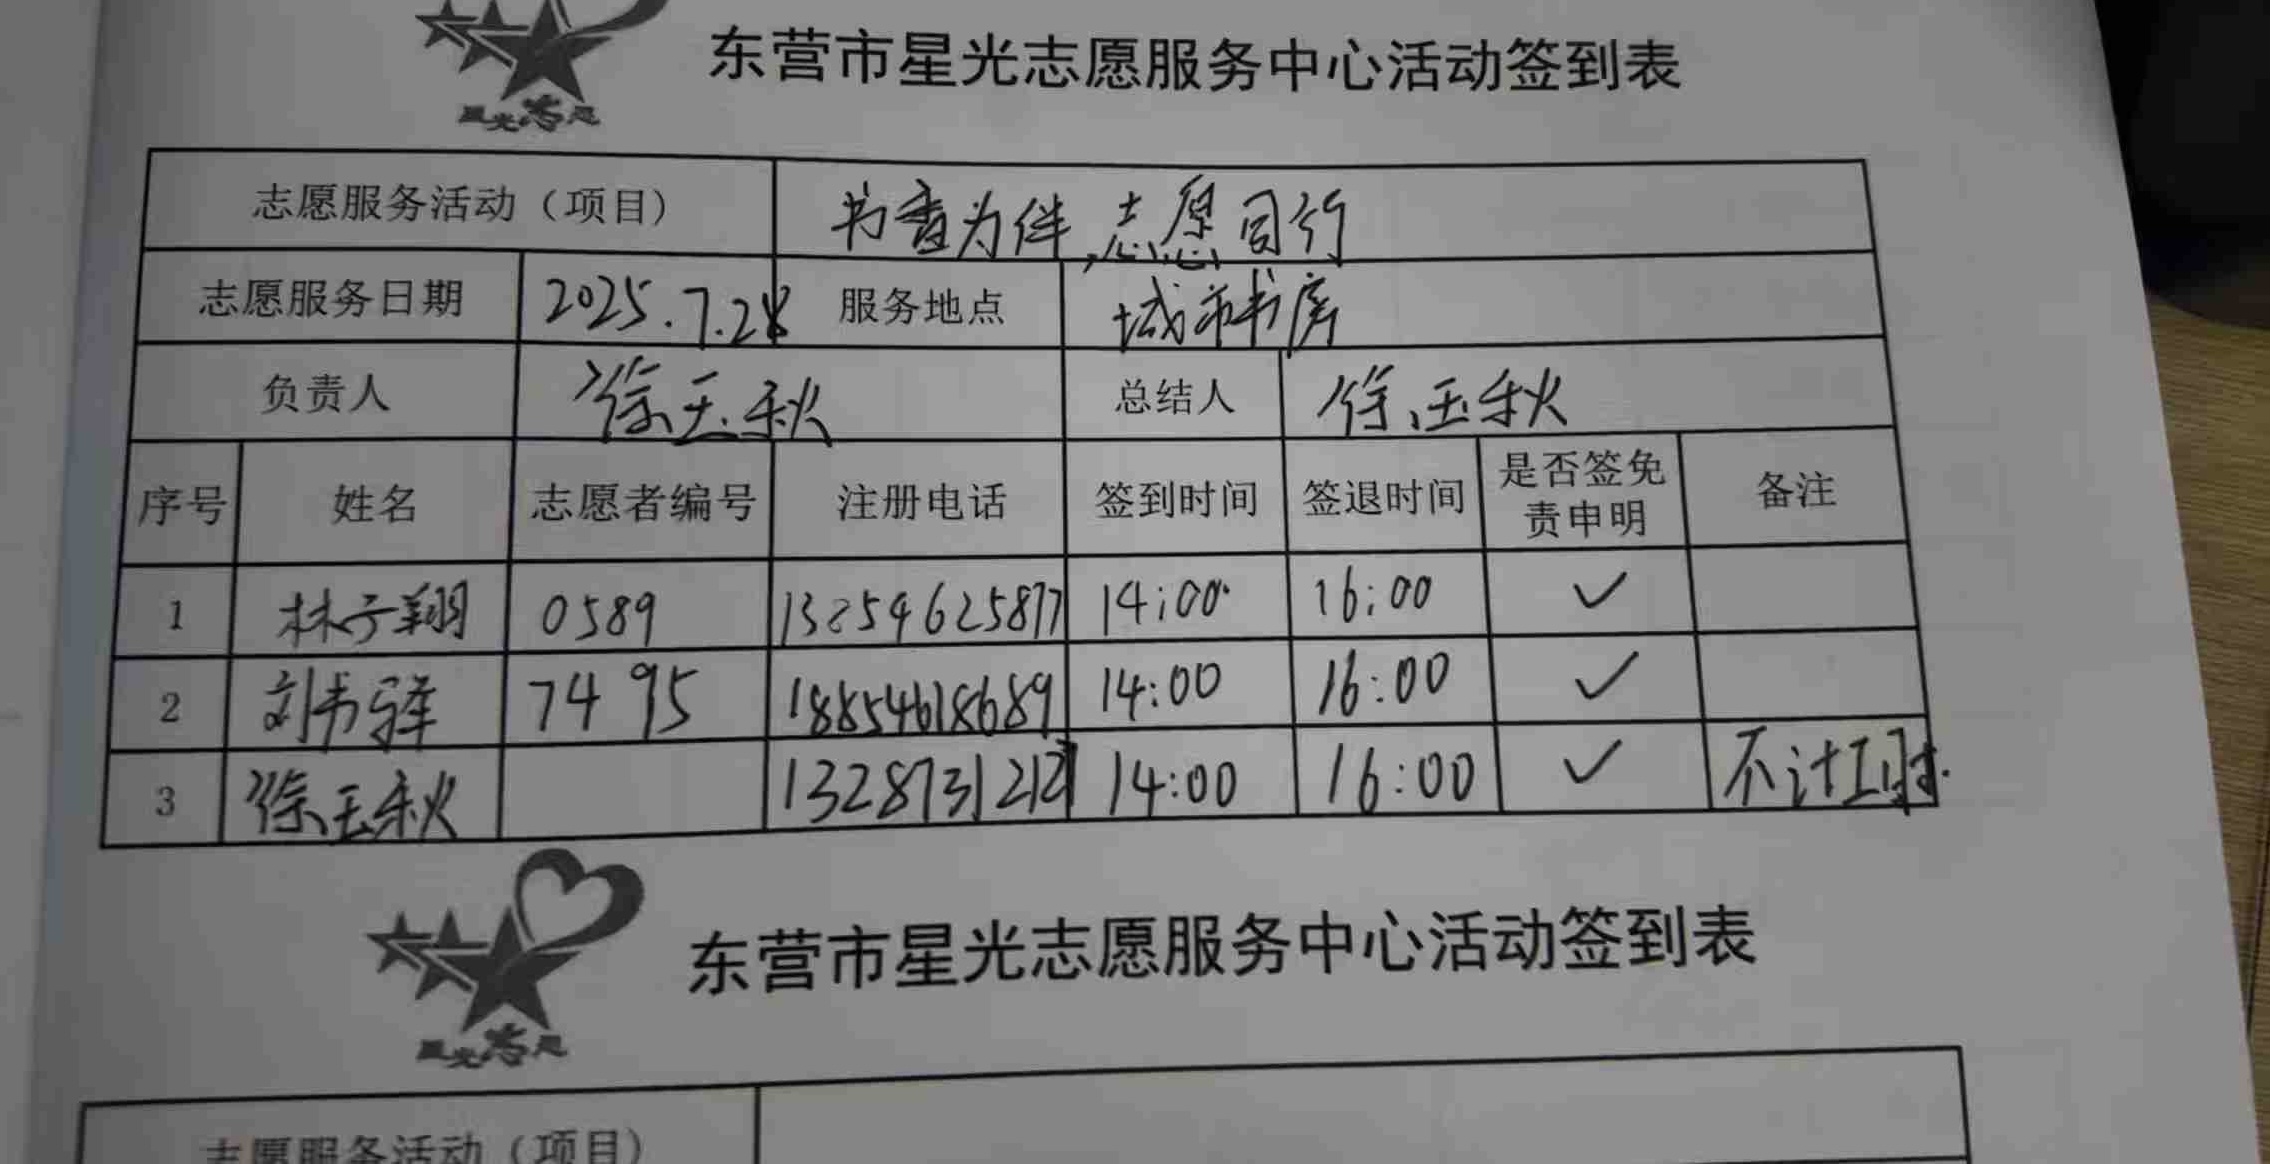 星光志愿
东营市星光志愿服务中心活动签到表
志愿服务活动（项目） 书香为伴,志愿同行
志愿服务日期 2025.7.28 服务地点 城市书房
负责人 徐玉秋 总结人 徐玉秋
序号 姓名 志愿者编号 注册电话 签到时间 签退时间 是否签免责申明 备注
1 林子翔 0589 13254625877 14:00 16:00 ✓
2 刘书驿 7495 18854618689 14:00 16:00 ✓
3 徐玉秋 13287312127 14:00 16:00 ✓ 不计工时.
星光志愿
东营市星光志愿服务中心活动签到表
志愿服务活动（项目）